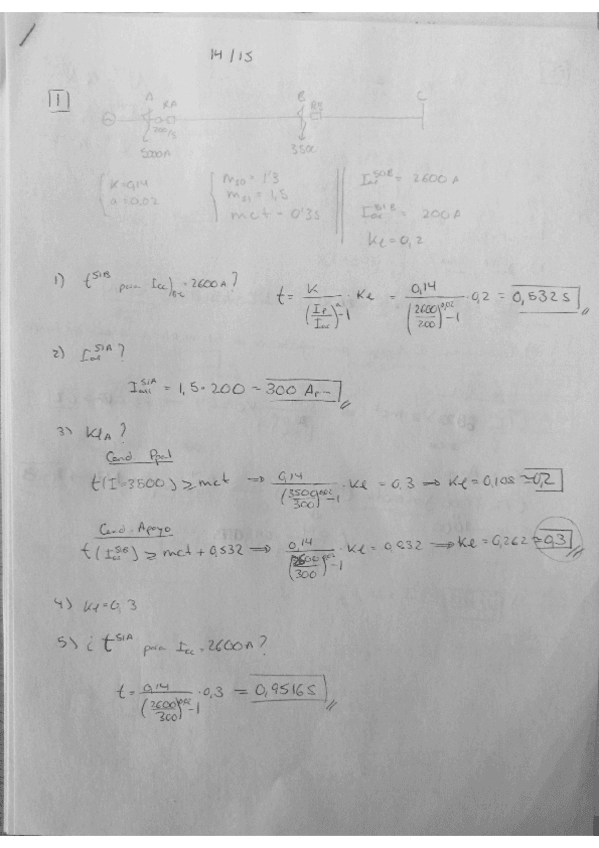 14/15
1
A RA B RB C
200/5
5000A 350
K=0,14
a=0,02
m50 = 1'3
m51 = 1,5
mct = 0'3s
I SIB = 2600 A
I SIB = 200A
Kt=0,2
1) t SIB para Icc = 2600A? t = K / ((If/Iac)^a - 1) · Kt = 0,14 / ((2600/200)^0,02 - 1) · 0,2 = 0,532 s
2) I SIA?
I SIA = 1,5·200 = 300 A
3) KtA?
Cond. Ppal
t(I=3500) ≥ mct ⇒ 0,14 / ((3500/300)^0,02 - 1) · Kt = 0,3 → Kt = 0,108 ≈ 0,2
Cond. Apoyo
t(I SIB) ≥ mct + 0,532 ⇒ 0,14 / ((2600/300)^0,02 - 1) · Kt = 0,832 → Kt = 0,262 ≈ 0,3
4) Kt=0,3
5) ¿ t SIA para Icc = 2600A?
t = 0,14 / ((2600/300)^0,02 - 1) · 0,3 = 0,9516 s